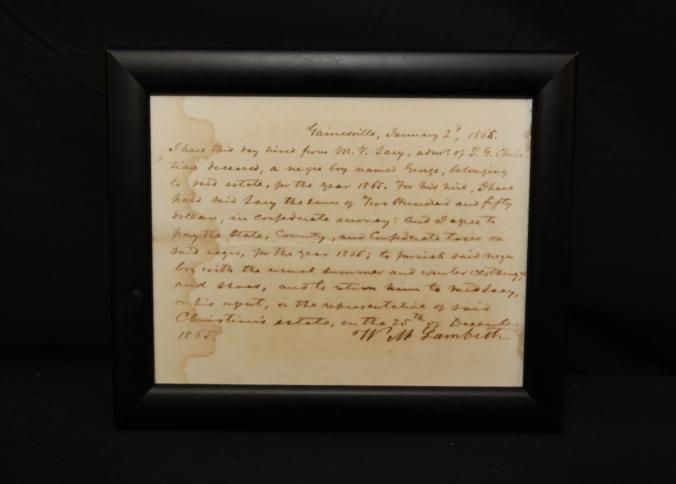 Gainesville, January 2d, 1865.
I have this day hired from M. V. Lacy, admr. of T. G. Chris-
tian deceased, a negro boy named George, belonging
to said estate, for the year 1865. For his hire, I have
paid said Lacy the sum of Two Hundred and fifty
dollars, in Confederate money: And I agree to
pay the State, County, and Confederate taxes on
said negro, for the year 1865; to furnish said negro
boy with the usual summer and winter clothing,
and shoes, and to return him to said Lacy,
or his agent, or the representative of said
Christian's estate, on the 25th of December
1865.    W M Lambeth